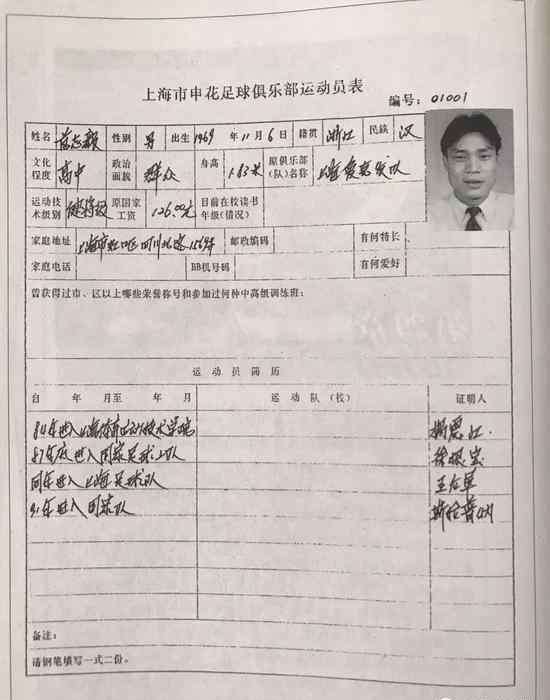 上海市申花足球俱乐部运动员表
编号：01001
姓名 范志毅 性别 男 出生 1969 年 11 月 6 日 籍贯 浙江 民族 汉
文化程度 高中 政治面貌 群众 身高 1.83米 原俱乐部(队)名称 上海
运动技术级别 健将级 原国家工资 126.00元 目前在校读书年级(情况)
家庭地址 上海市虹口区四川北路 邮政编码 有何特长
家庭电话 BB机号码 有何爱好
曾获得过市、区以上哪些荣誉称号和参加过何种中高级训练班：
运动员简历
自 年 月至 年 月 运动队(校) 证明人
84年进入上海体育运动技术学院
87年底进入国家足球二队 徐根宝
同年进入上海足球队 王后军
91年进入国家队 斯拉普纳
备注：
请钢笔填写一式二份。